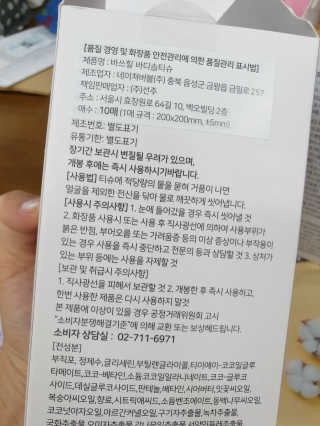 [품질 경영 및 화장품 안전관리에 의한 품질관리 표시법]
제품명 : 바쓰힐 바디솔티슈
제조업자 : 네이처버블(주) 충북 음성군 금왕읍 금일로 257
책임판매업자 : (주)선주
주소 : 서울시 효창원로 64길 10, 백오빌딩 2층
매수 : 10매 (1매 규격 : 200x200mm, ±5mm)
제조번호: 별도표기
유통기한: 별도표기
장기간 보관시 변질될 우려가 있으며,
개봉 후에는 즉시 사용하시기바랍니다.
[사용법] 티슈에 적당량의 물을 묻혀 거품이 나면
얼굴을 제외한 전신을 닦아 물로 깨끗하게 씻어냅니다.
[사용시 주의사항] 1. 눈에 들어갔을 경우 즉시 씻어낼 것
2. 화장품 사용시 또는 사용 후 직사광선에 의하여 사용부위가
붉은 반점, 부어오름 또는 가려움증 등의 이상 증상이나 부작용이
있는 경우 사용을 즉시 중단하고 전문의 등과 상담할 것 3. 상처가
있는 부위 등에는 사용을 자제할 것
[보관 및 취급시 주의사항]
1. 직사광선을 피해서 보관할 것 2. 개봉한 후 즉시 사용하고,
한번 사용한 제품은 다시 사용하지 말것
본 제품에 이상이 있을 경우 공정거래위원회 고시
"소비자분쟁해결기준"에 의해 교환 또는 보상해드립니다.
소비자 상담실 : 02-711-6971
[전성분]
부직포, 정제수, 글리세린, 부틸렌글라이콜, 티이에이-코코일글루
타메이트, 코코-베타인, 소듐코코일알라니네이트, 코코-글루코
사이드, 데실글루코사이드, 판테놀, 베타인, 시어버터, 인동꽃오일,
복숭아씨오일, 향료, 시트릭애씨드, 소듐벤조에이트, 동백나무씨오일,
코코넛야자오일, 아르간커넬오일, 구기자추출물, 녹차추출물,